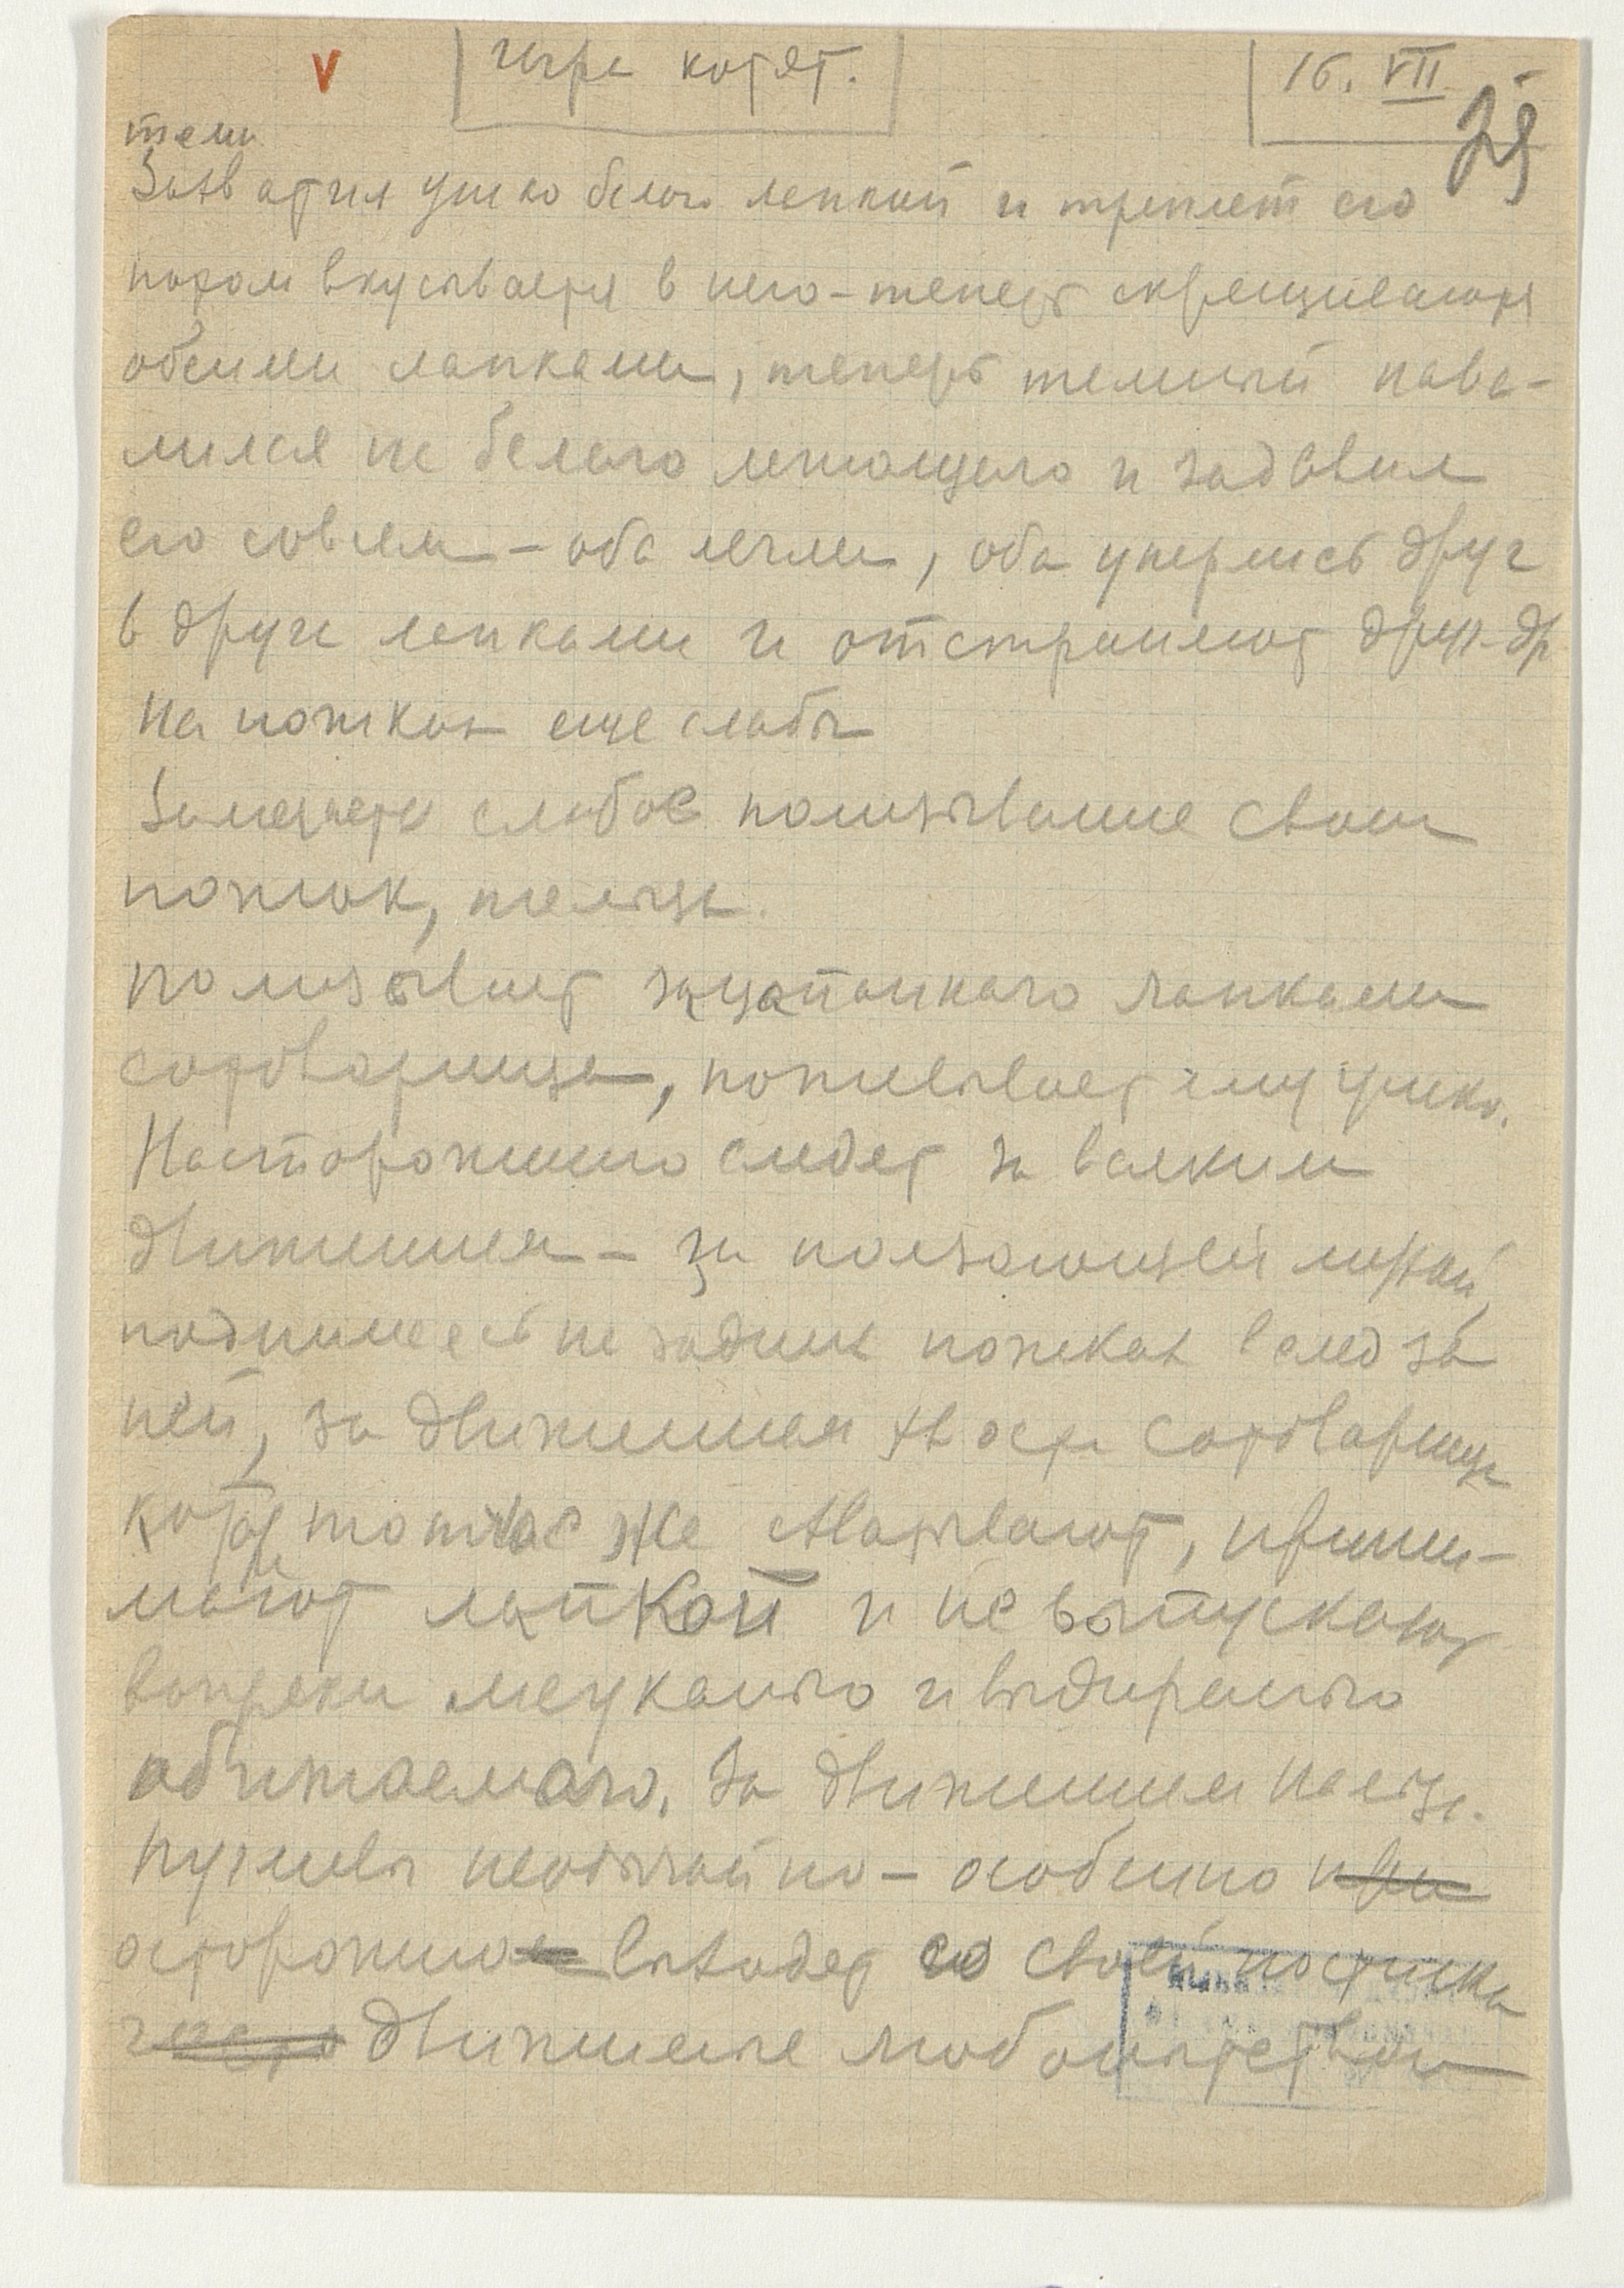 V
игра котят.
16. VII
29
темн
Захватил ушко белого лапкой и треплет его
потом вкусывается в него - теперь скрещиваются
обеими лапками, теперь темный нава-
лился на белого лежащего и задавил
его совсем - оба легли, оба уперлись друг
в друга лапками и отстраняют друг др
На ножках еще слабы
Замечается слабое полизывание своих
ножек, тельца.
полизывает зацапанного лапками
сотоварища, пожевывает ему ушко.
Насторожённо следят за всяким
движением - за ползающей мухой,
поднимаясь на задних ножках вслед за
ней, за движением хвоста сотоварища
котор тотчас же схватывают, прини-
мают лапкой и не выпускают
вопреки мяуканью и выдиранью
обижаемого. За движением пальца.
Пугливы необычайно - особенно при
осторожно выходят со своей постилки
часто движение любопытством